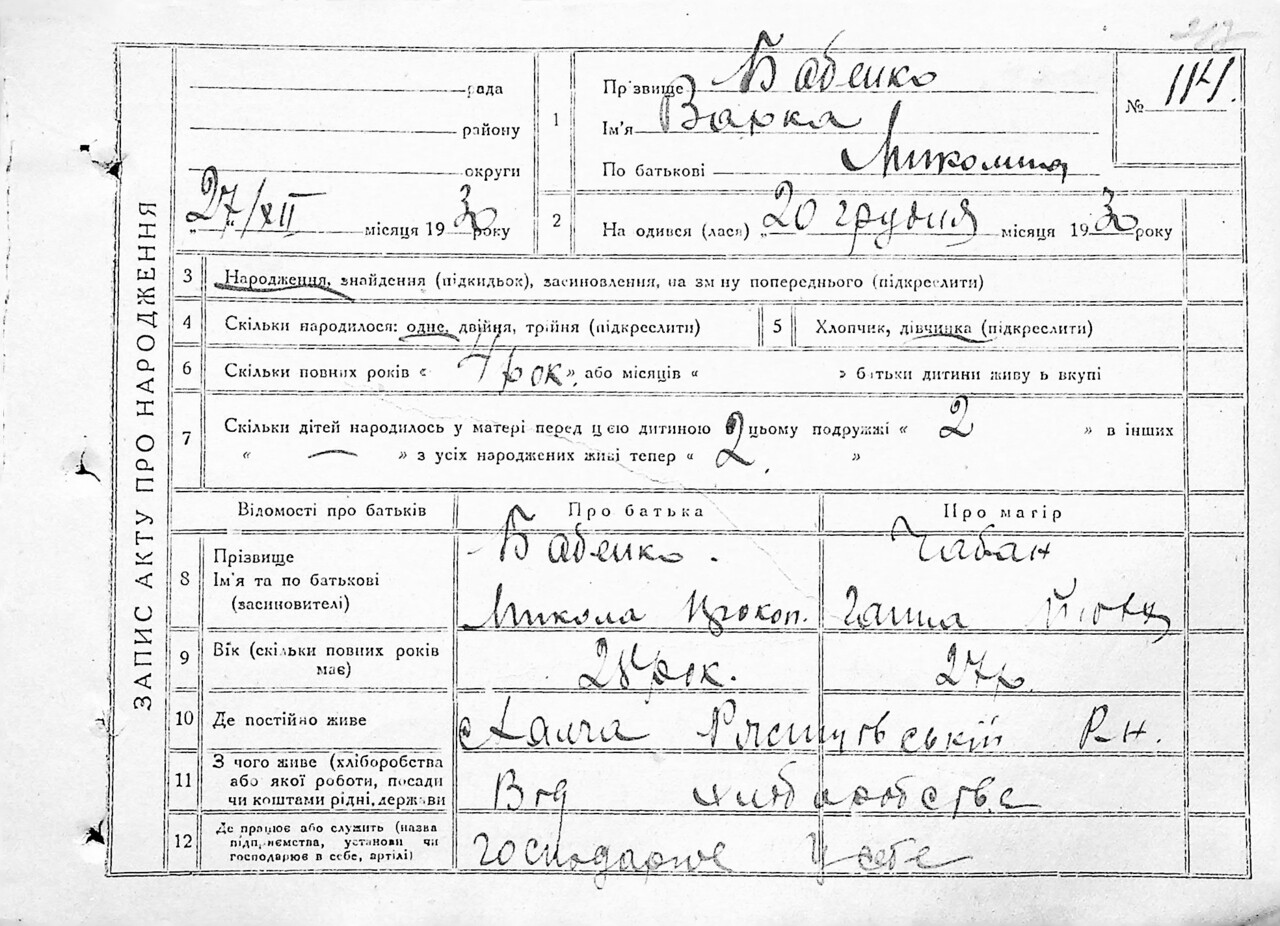 ЗАПИС АКТУ ПРО НАРОДЖЕННЯ
рада
району
округи
„27/XII місяця 1930 року
1
Прізвище Бабенко
Ім'я Варка
По батькові Миколина
№ 1141.
2
Народився (лася) „20 грудня місяця 1930 року
3 Народження, знайдення (підкидьок), засиновлення, на зміну попереднього (підкреслити)
4 Скільки народилося: одне, двійня, трійня (підкреслити) 5 Хлопчик, дівчинка (підкреслити)
6 Скільки повних років « 4 рок. » або місяців « » батьки дитини живуть вкупі
7 Скільки дітей народилось у матері перед цією дитиною в цьому подружжі « 2 » в інших
« — » з усіх народжених живі тепер « 2. »
Відомості про батьків Про батька Про матір
8 Прізвище Бабенко. Чабан
Ім'я та по батькові
(засиновителі) Микола Прокоп. Ганна
9 Вік (скільки повних років має) 28 рок. 27 р.
10 Де постійно живе с Халча Рн.
11 З чого живе (хліборобства
або якої роботи, посади
чи коштами рідні, держави Від хліборобства
12 Де працює або служить (назва
підприємства, установи чи
господарює в себе, артілі) Господарює у себе